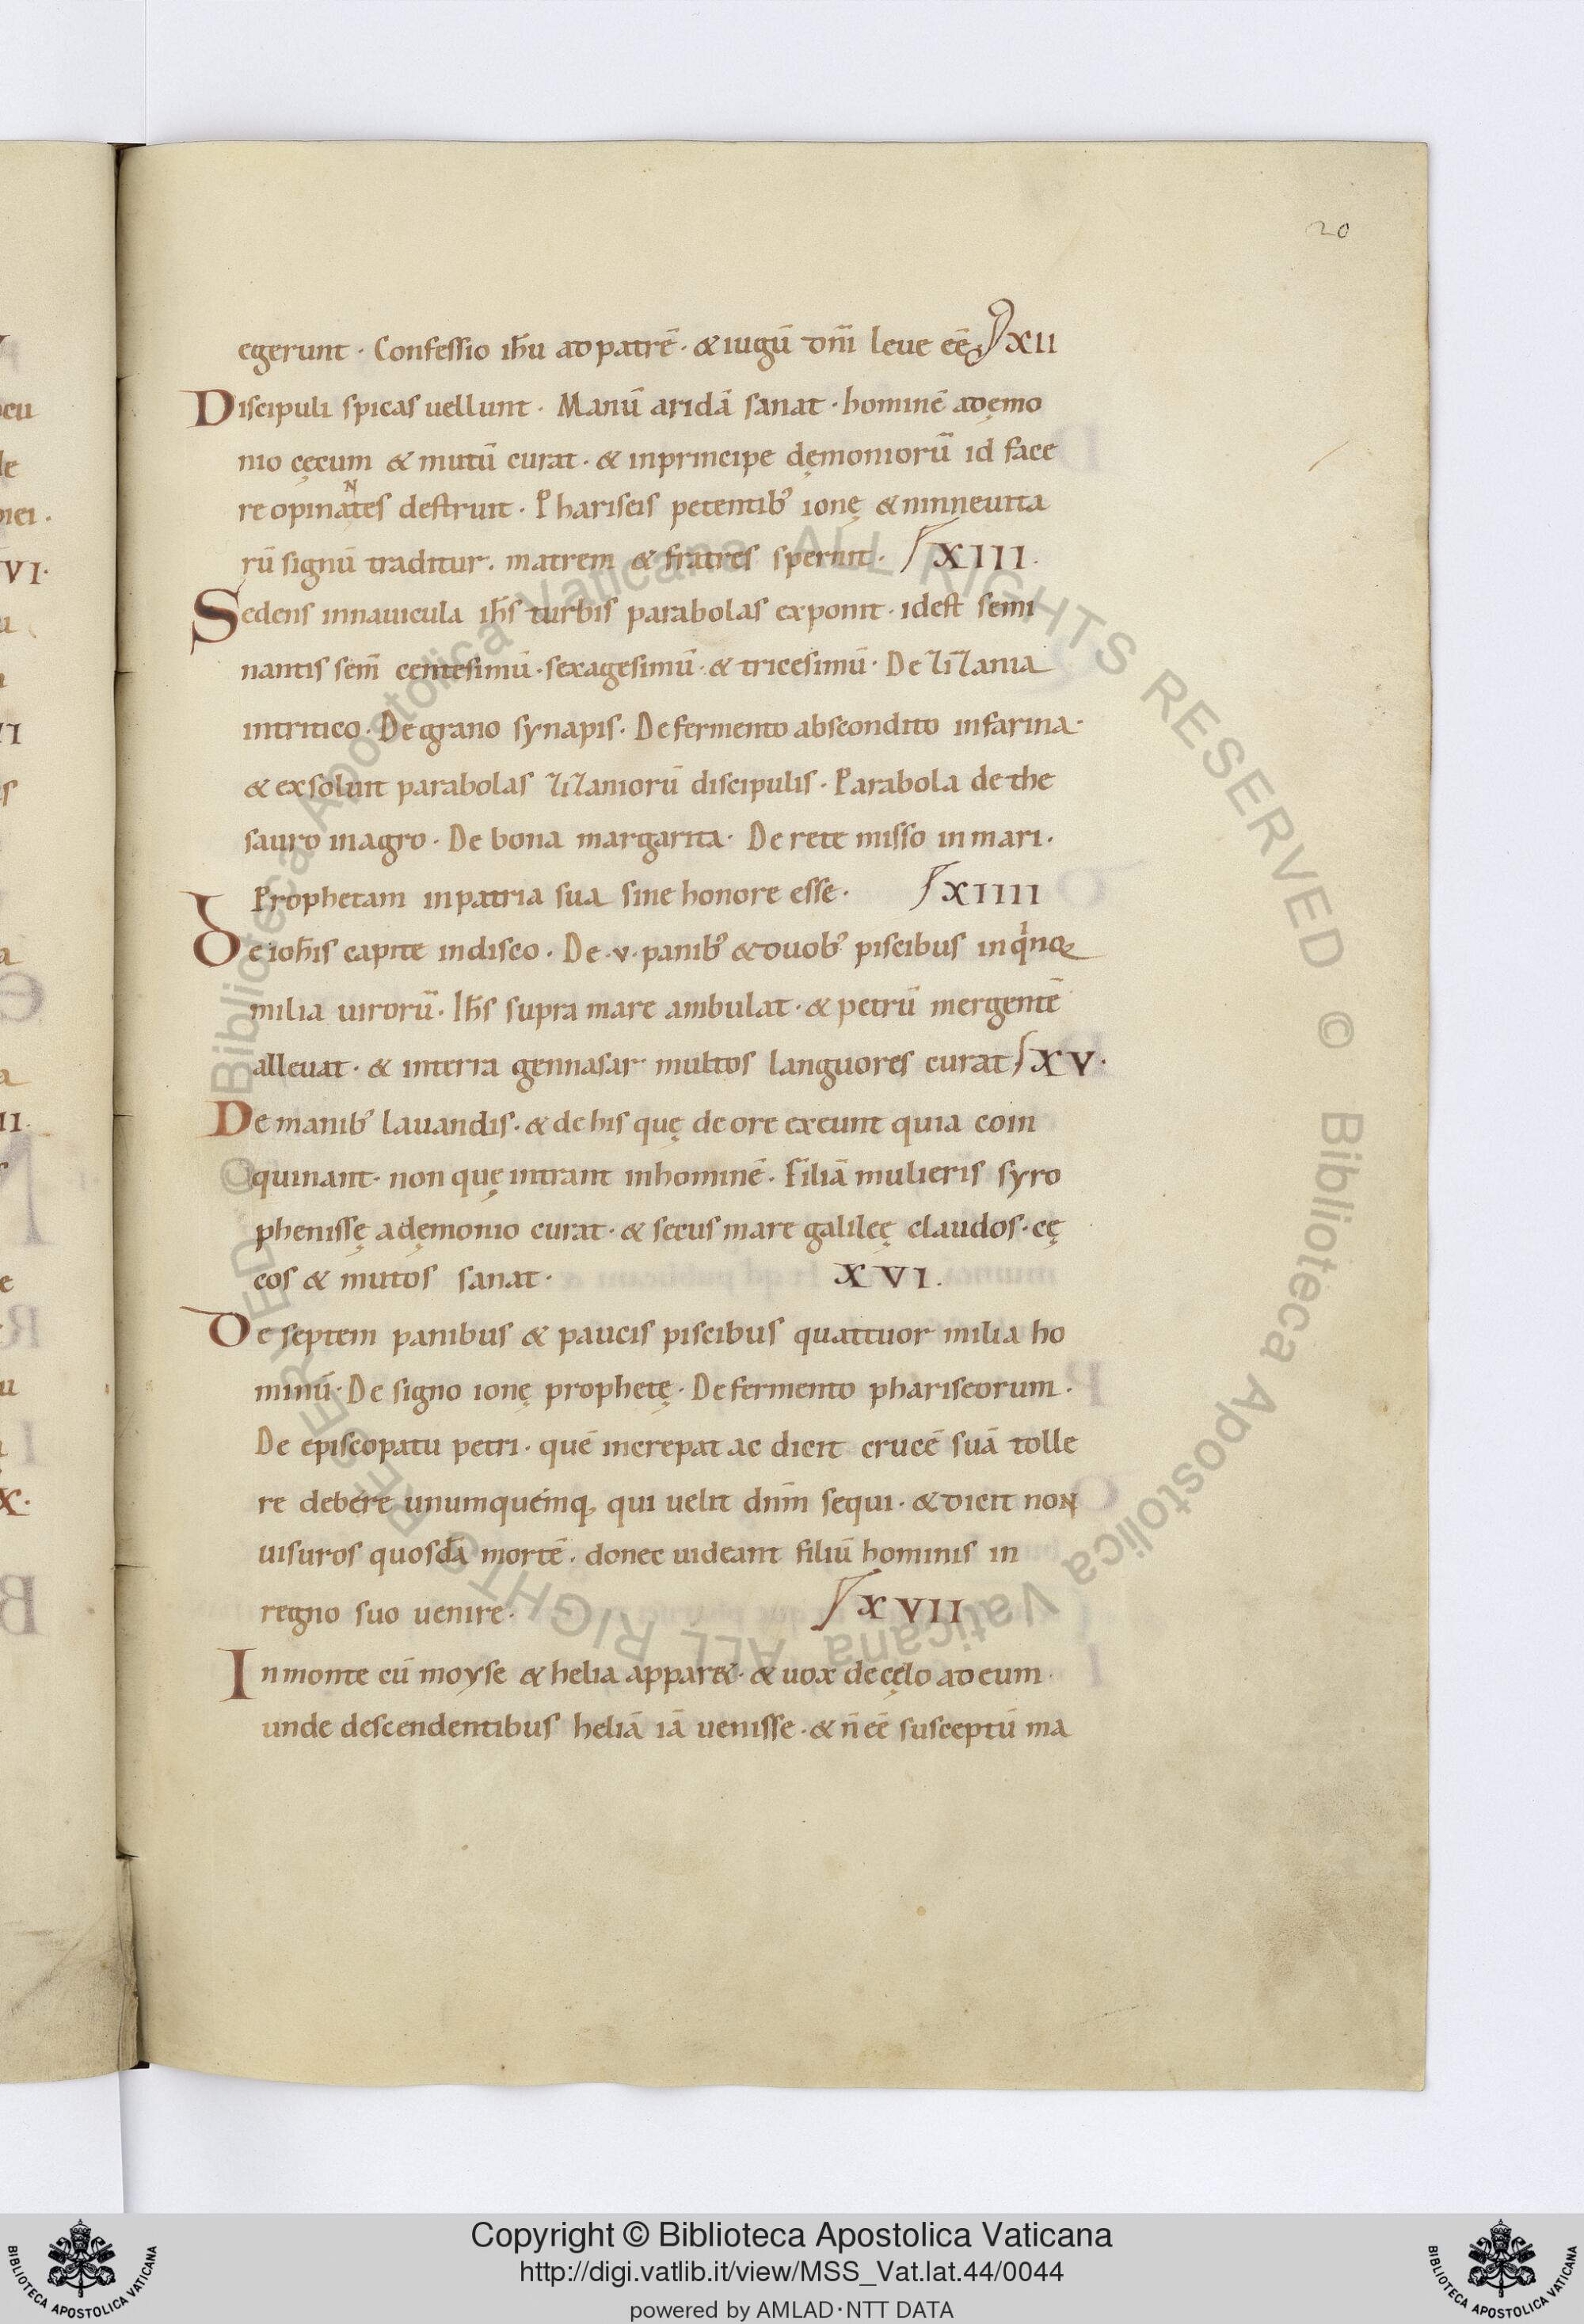 20
egerunt · Confessio ih̅u ad patrē · & iugū dn̅i leue eē XII
Discipuli spicas uellunt · Manū aridā sanat · hominē a dęmo
nio cęcum & mutū curat · & in principe dęmoniorū id face
re opinaNtes destruit · Phariseis petentib; ionę & ninneuita
rū signū traditur · matrem & fratres spernit · XIII ·
Sedens in nauicula ih̅s turbis parabolas exponit · idest semi
nantis sem̅ centesimū · sexagesimū · & tricesimū · De zizania
in tritico · De grano synapis · De fermento abscondito in farina ·
& exsoluit parabolas zizaniorū discipulis · Parabola de the
sauro in agro · De bona margarita · De rete misso in mari ·
Prophetam in patria sua sine honore esse · XIIII
De ioh̅is capite in disco · De · v · panib; & duob; piscibus in qinq;
milia uirorū · Ih̅s supra mare ambulat · & petrū mergentē
alleuat · & in terra gennasar multos languores curat XV ·
De manib; lauandis · & de his quę de ore exeunt quia coin
quinant · non quę intrant in hominē · Filiā mulieris syro
phenissę a dęmonio curat · & secus mare galileę claudos · cę
cos & mutos sanat · XVI ·
De septem panibus & paucis piscibus quattuor milia ho
minū · De signo ionę prophetę · De fermento phariseorum ·
De episcopatu petri · quē increpat ac dicit crucē suā tolle
re debere unumquemq; qui uelit dn̅m sequi · & dicit noN
uisuros quosdā mortē · donec uideant filiū hominis in
regno suo uenire · XVII
In monte cū moyse & helia appar& · & uox de cęlo ad eum ·
unde descendentibus heliā iā uenisse · & n̅ eē susceptū ma
© Biblioteca Apostolica Vaticana ALL RIGHTS RESERVED © Biblioteca Apostolica Vaticana ALL RIGHTS RESERVED
Copyright © Biblioteca Apostolica Vaticana
http://digi.vatlib.it/view/MSS_Vat.lat.44/0044
powered by AMLAD·NTT DATA
BIBLIOTECA APOSTOLICA VATICANA
BIBLIOTECA APOSTOLICA VATICANA